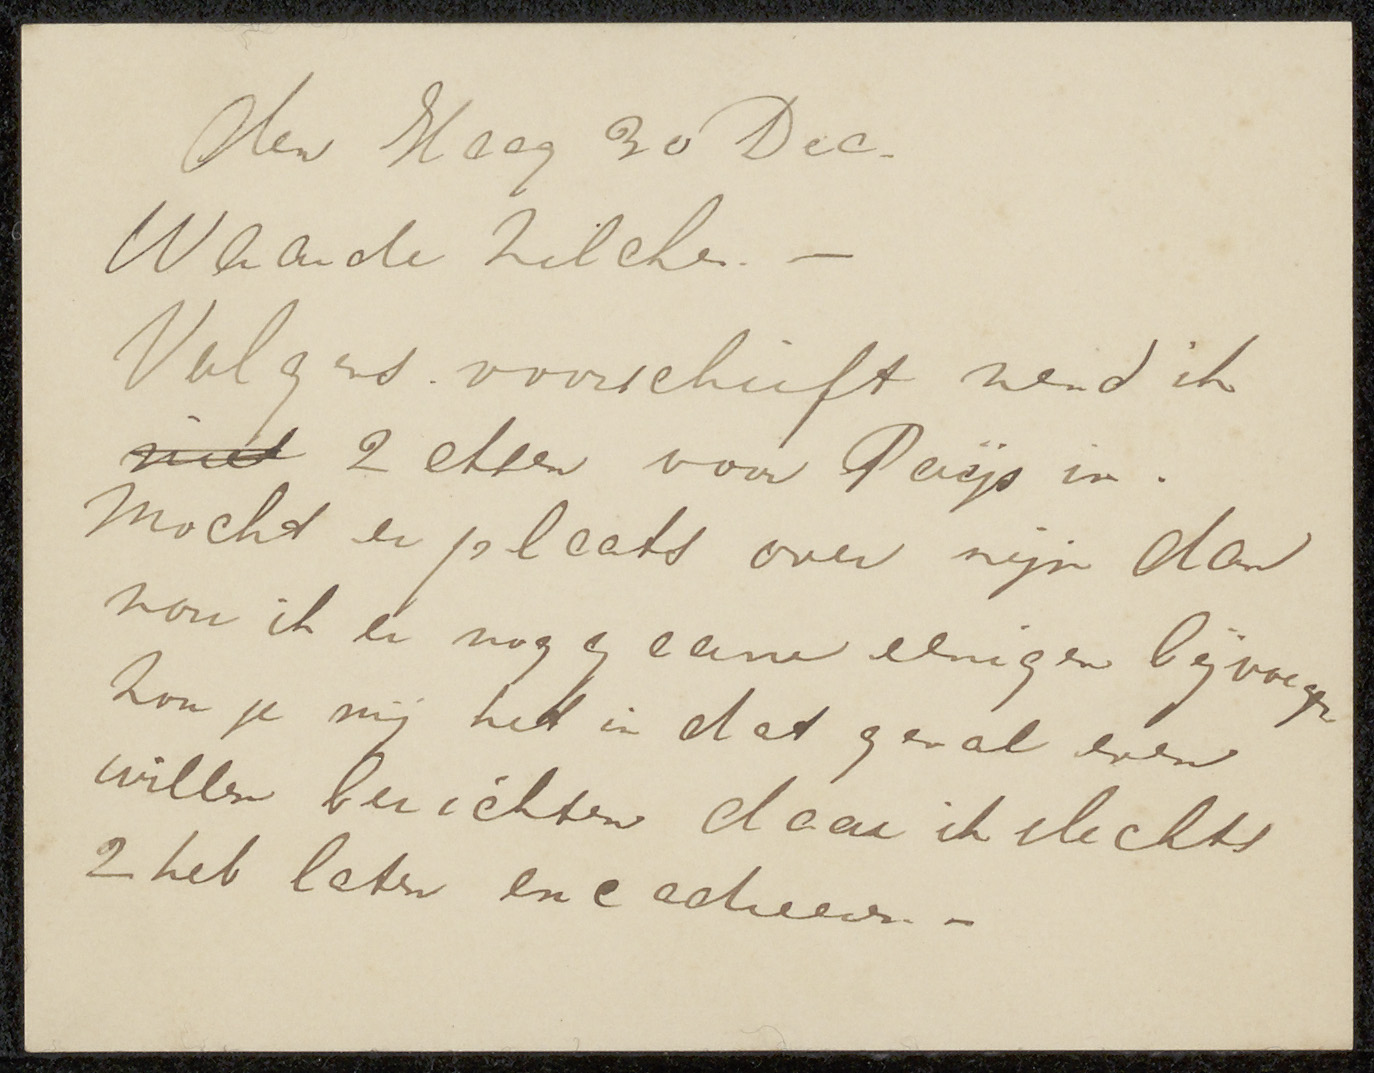 den Haag 30 Dec.
Waarde Zilcken. —
Volgens voorschrift zend ik
niet 2 etsen voor Parijs in.
Mocht er plaats over zijn dan
zou ik er nog gaarne eenigen bijvoegen
Zou je mij het in dat geval even
willen berichten daar ik slechts
2 heb laten encadreeren. —